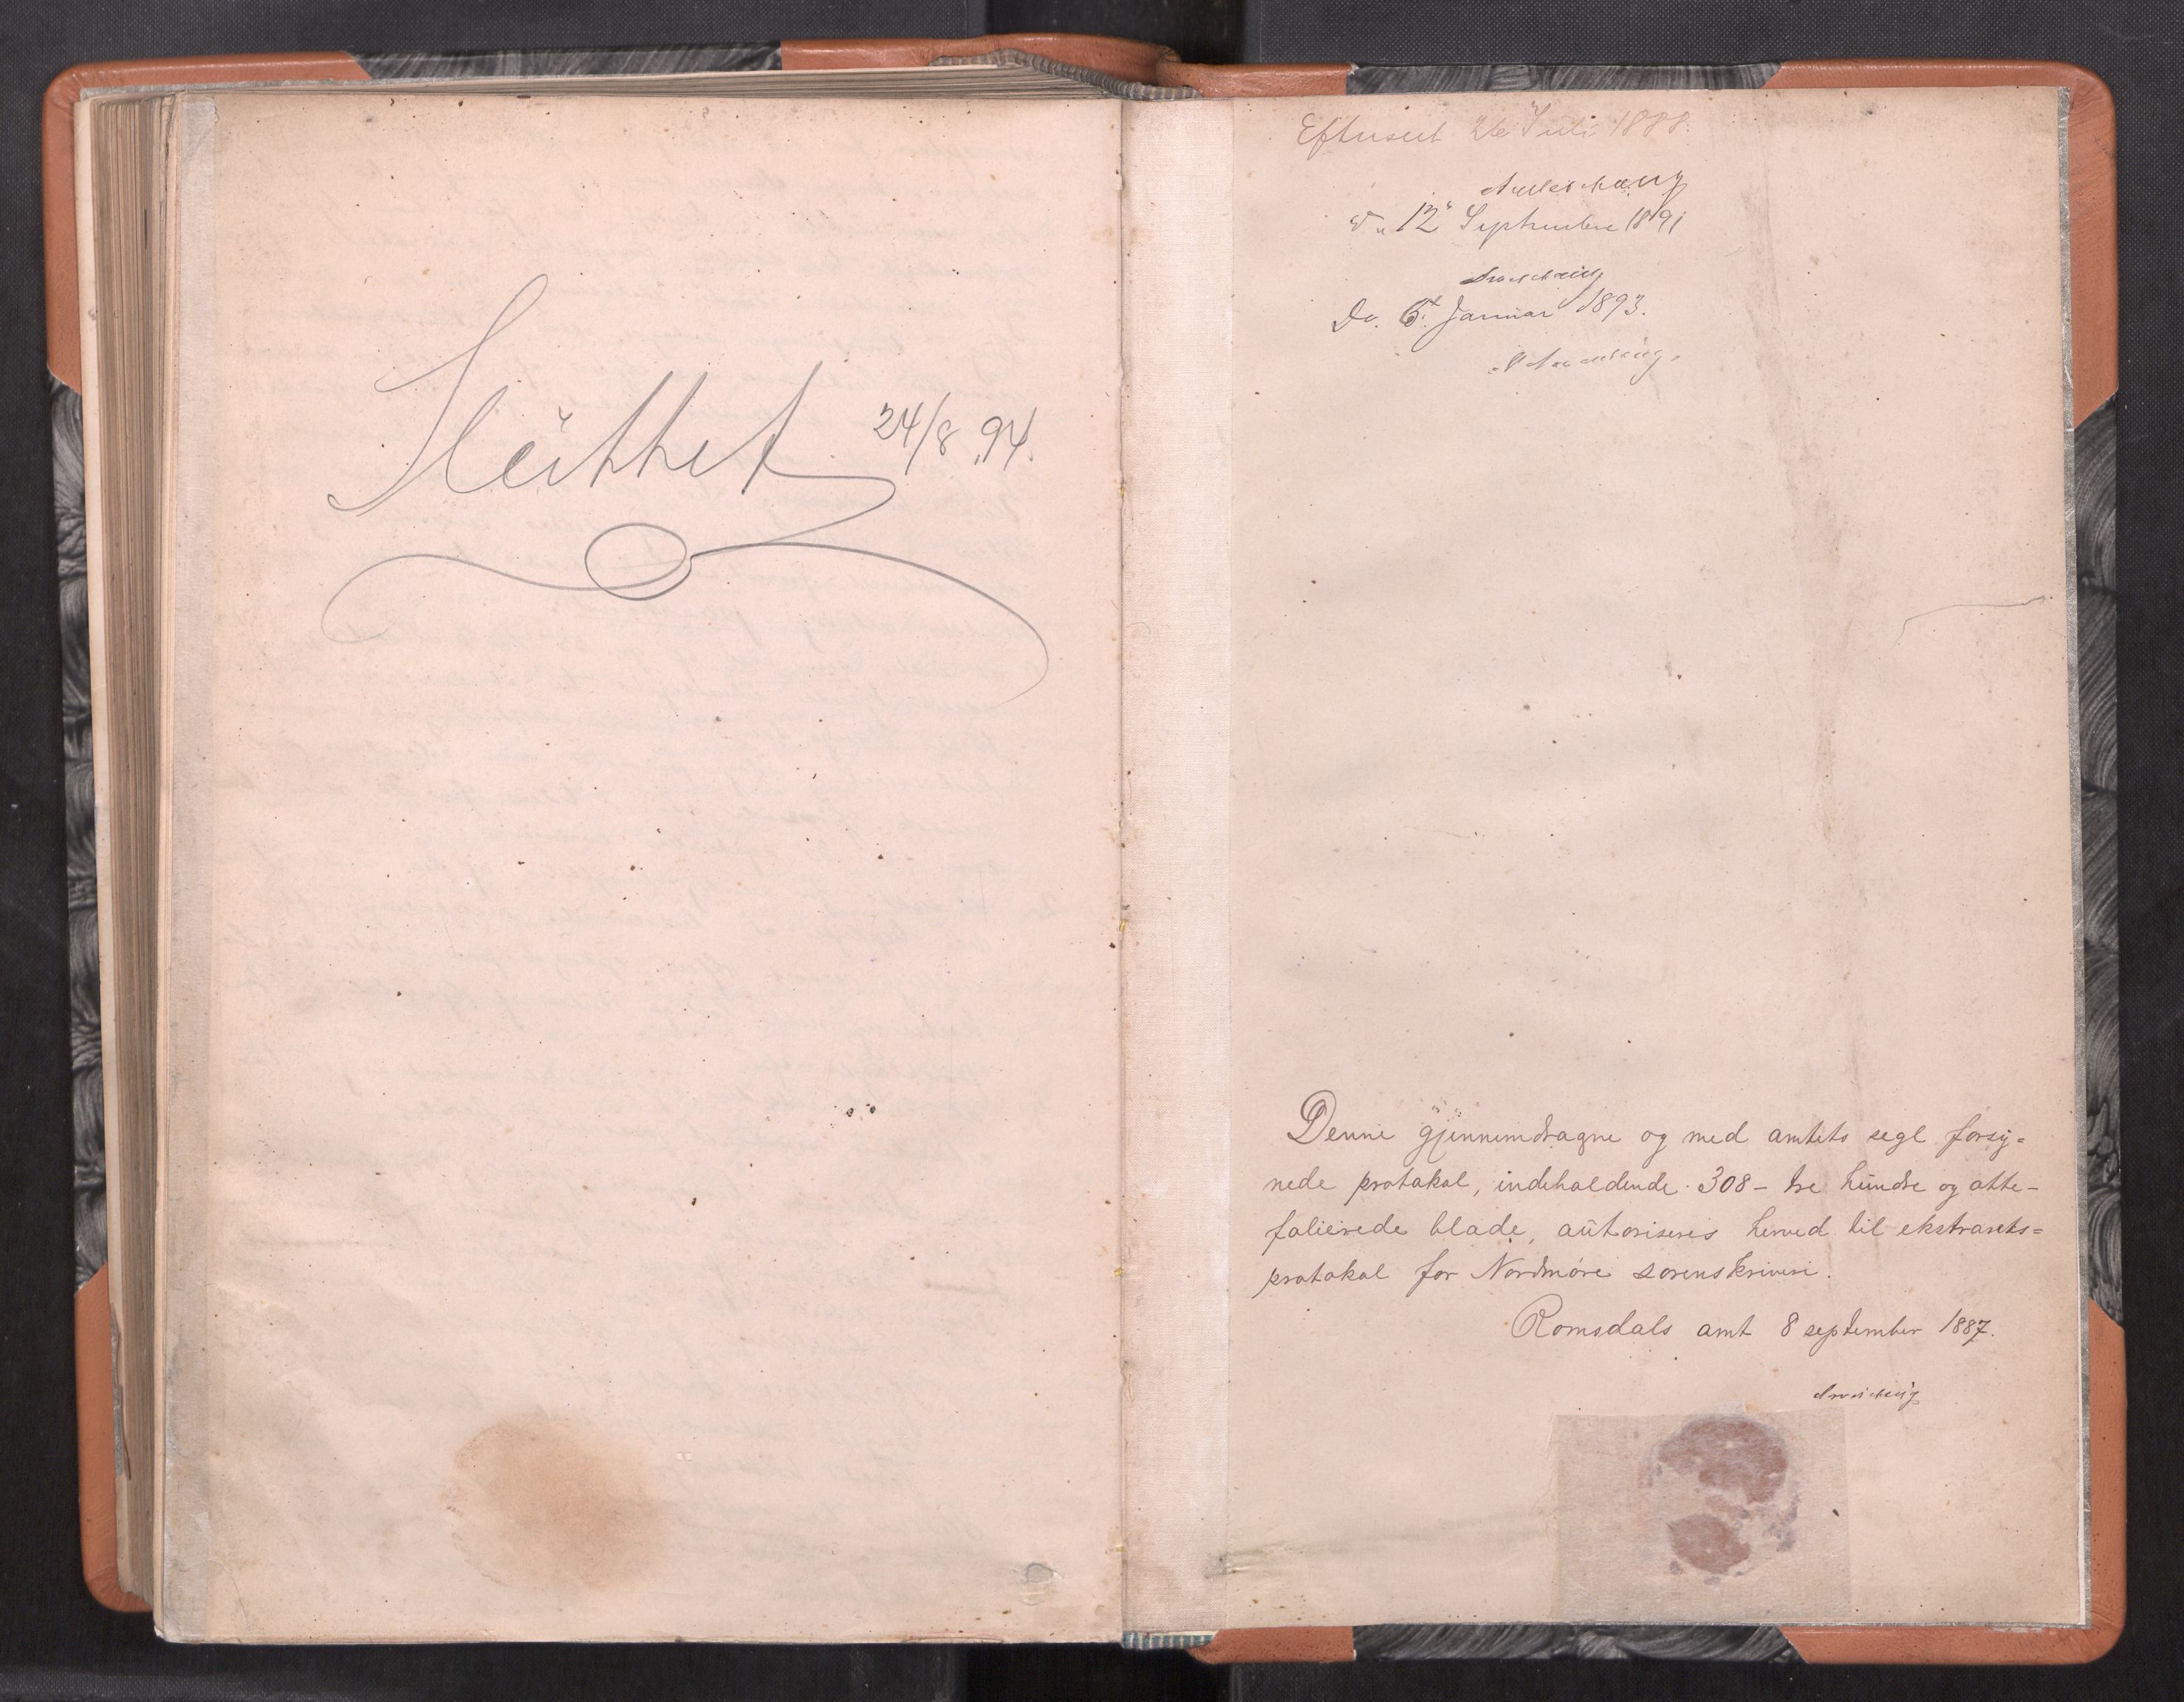 Slüttet 24/8.94.
Efterseet 26 Juli 1888.
Do 12te September 1891
Do. 6t. Januar 1893.
Denne gjennemdragne og med amtets segl forsy=
nede protokol, indeholdende 308 – tre hundre og otte –
folierede blade, autoriseres herved til ekstrarets=
protokol for Nordmøre sorenskriveri.
Romsdals amt 8 september 1887.